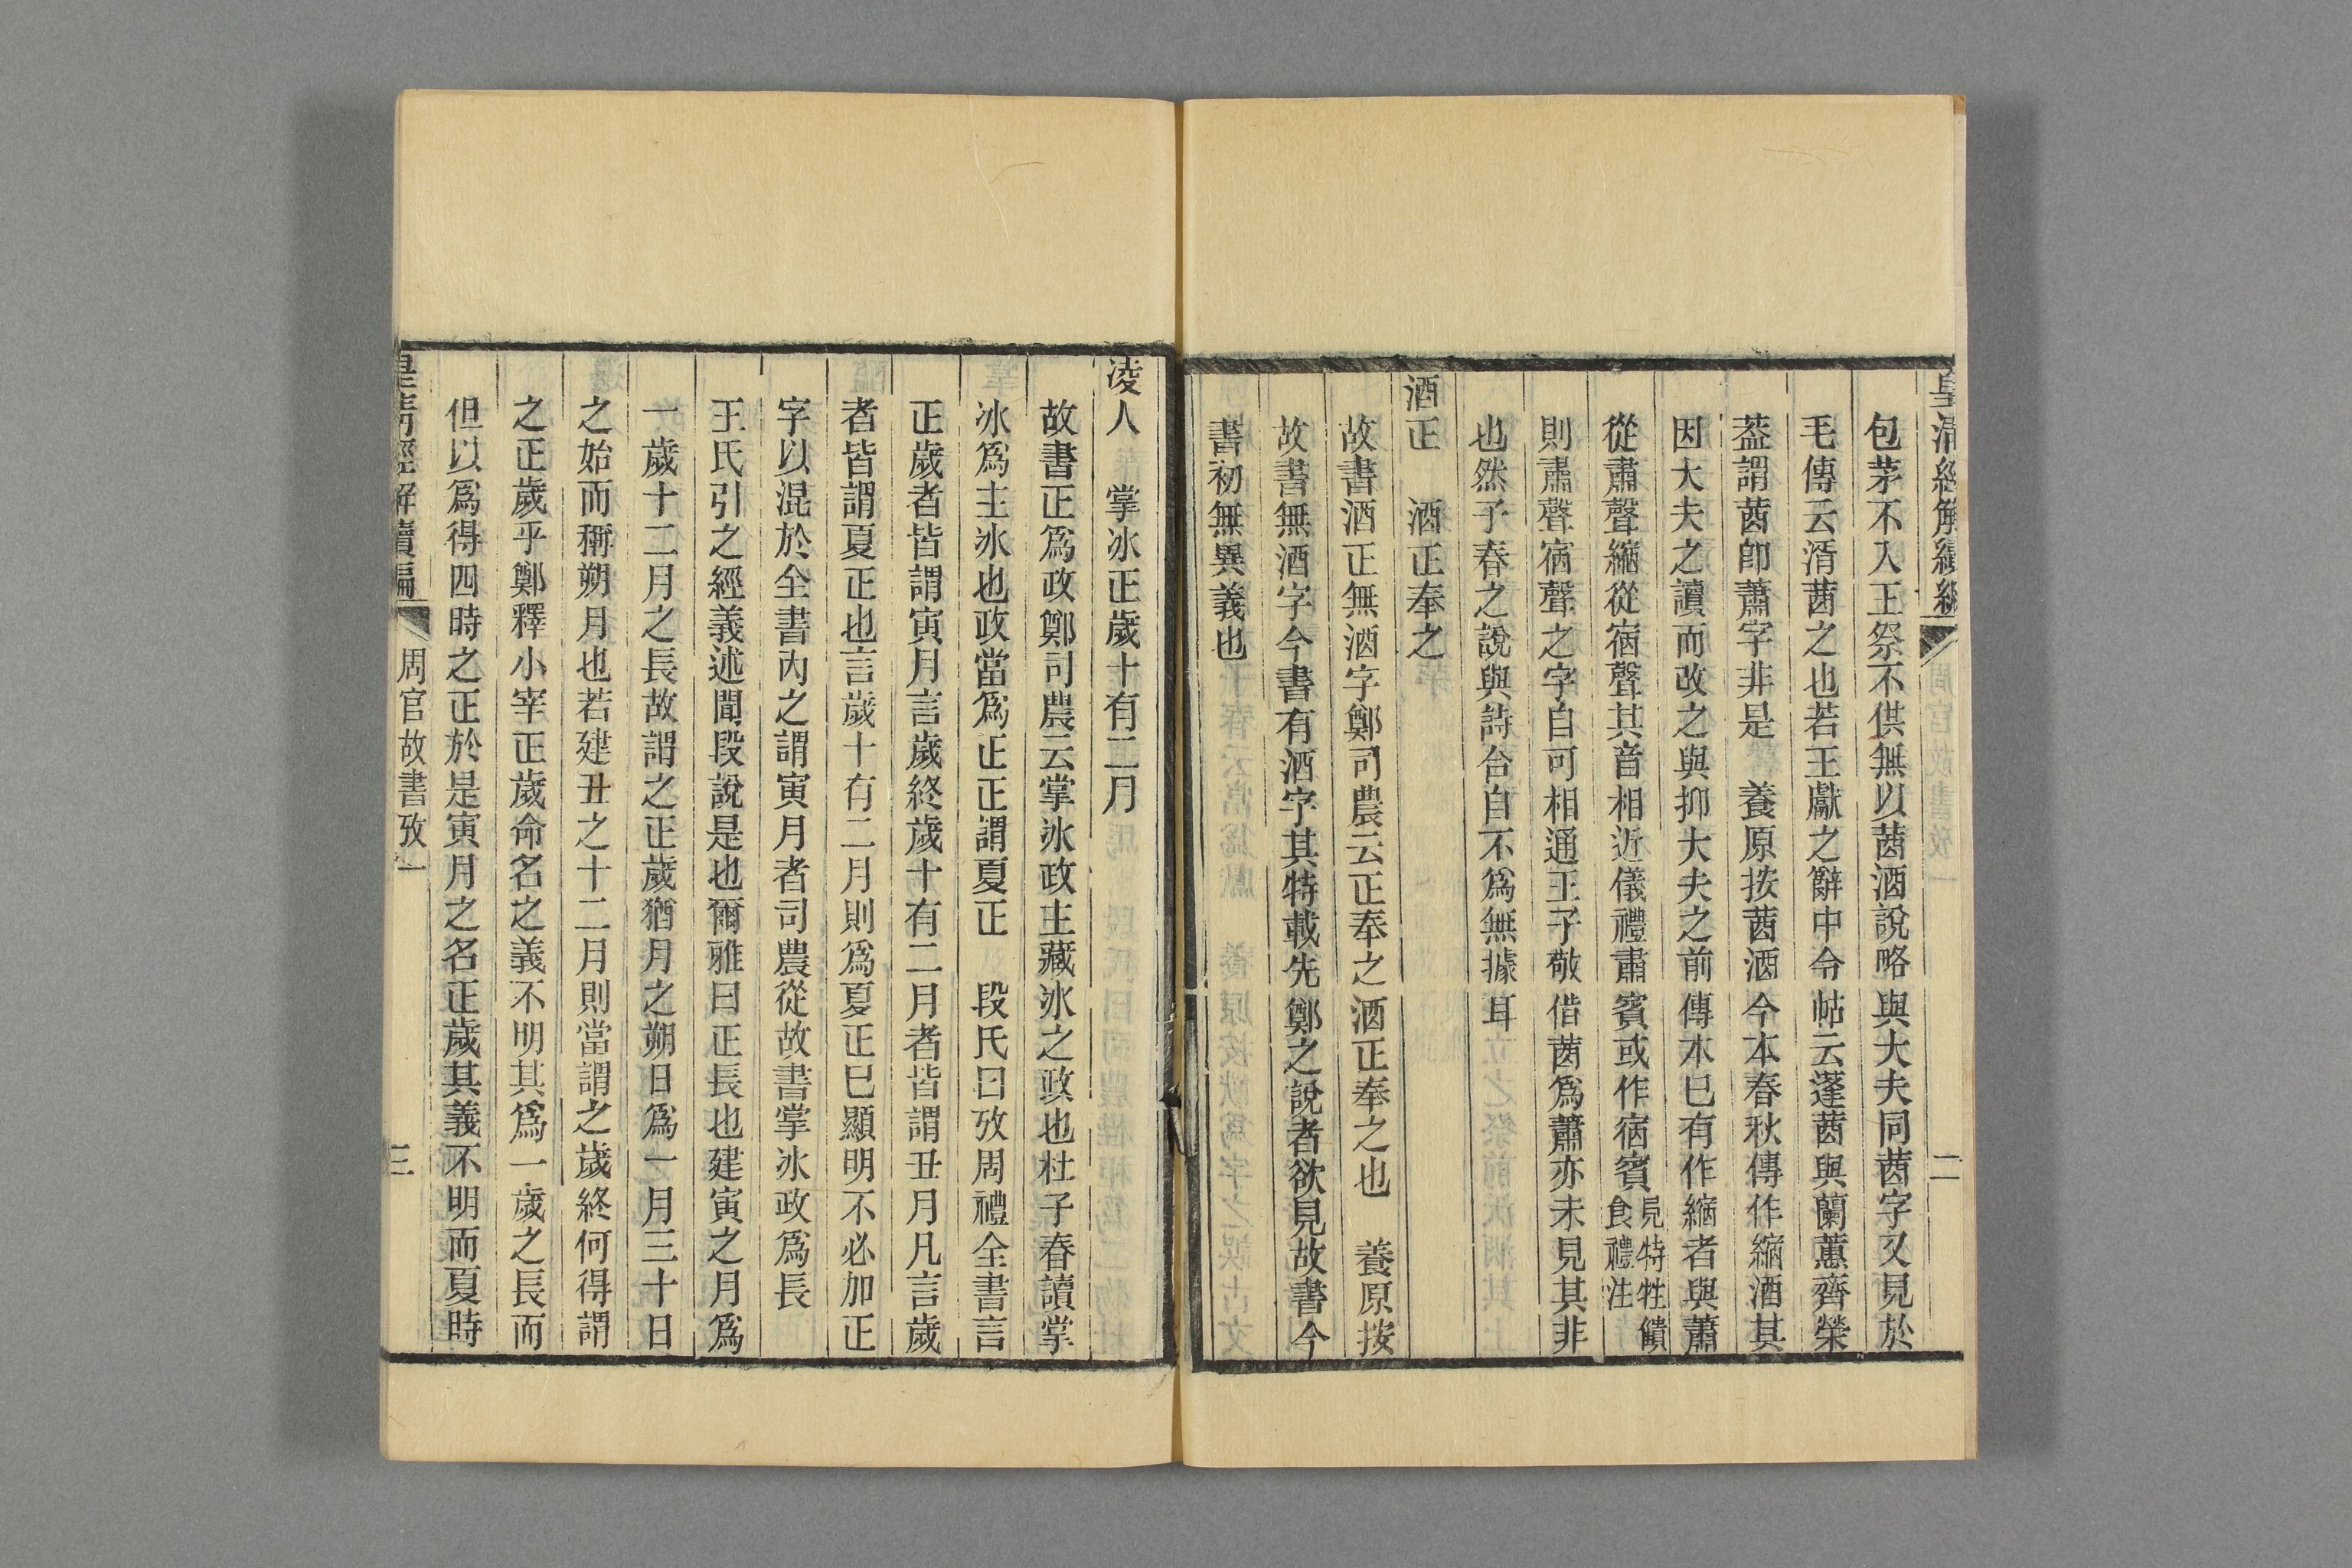 皇清經解續編
二
包茅不入王祭不供無以莤酒說略與大夫同莤字又見於
毛傳云湑莤之也若王獻之辭中令帖云蓬莤與蘭蕙齊榮
葢謂莤卽蕭字非是　養原按莤酒今本春秋傳作縮酒其
因大夫之讀而改之與抑大夫之前傳本已有作縮者與蕭
從肅聲縮從宿聲其音相近儀禮肅賓或作宿賓見特牲饋食禮注
則肅聲宿聲之字自可相通王子敬借莤爲蕭亦未見其非
也然子春之說與詩合自不爲無據耳
酒正　酒正奉之
故書酒正無酒字鄭司農云正奉之酒正奉之也　養原按
故書無酒字今書有酒字其特載先鄭之說者欲見故書今
書初無異義也
凌人　掌冰正歲十有二月
故書正爲政鄭司農云掌冰政主藏冰之政也杜子春讀掌
冰爲主冰也政當爲正正謂夏正　段氏曰攷周禮全書言
正歲者皆謂寅月言歲終歲十有二月者皆謂丑月凡言歲
者皆謂夏正也言歲十有二月則爲夏正已顯明不必加正
字以混於全書內之謂寅月者司農從故書掌冰政爲長
王氏引之經義述聞段說是也爾雅曰正長也建寅之月爲
一歲十二月之長故謂之正歲猶月之朔日爲一月三十日
之始而稱朔月也若建丑之十二月則當謂之歲終何得謂
之正歲乎鄭釋小宰正歲命名之義不明其爲一歲之長而
但以爲得四時之正於是寅月之名正歲其義不明而夏時
皇清經解續編
周官故書攷一
三